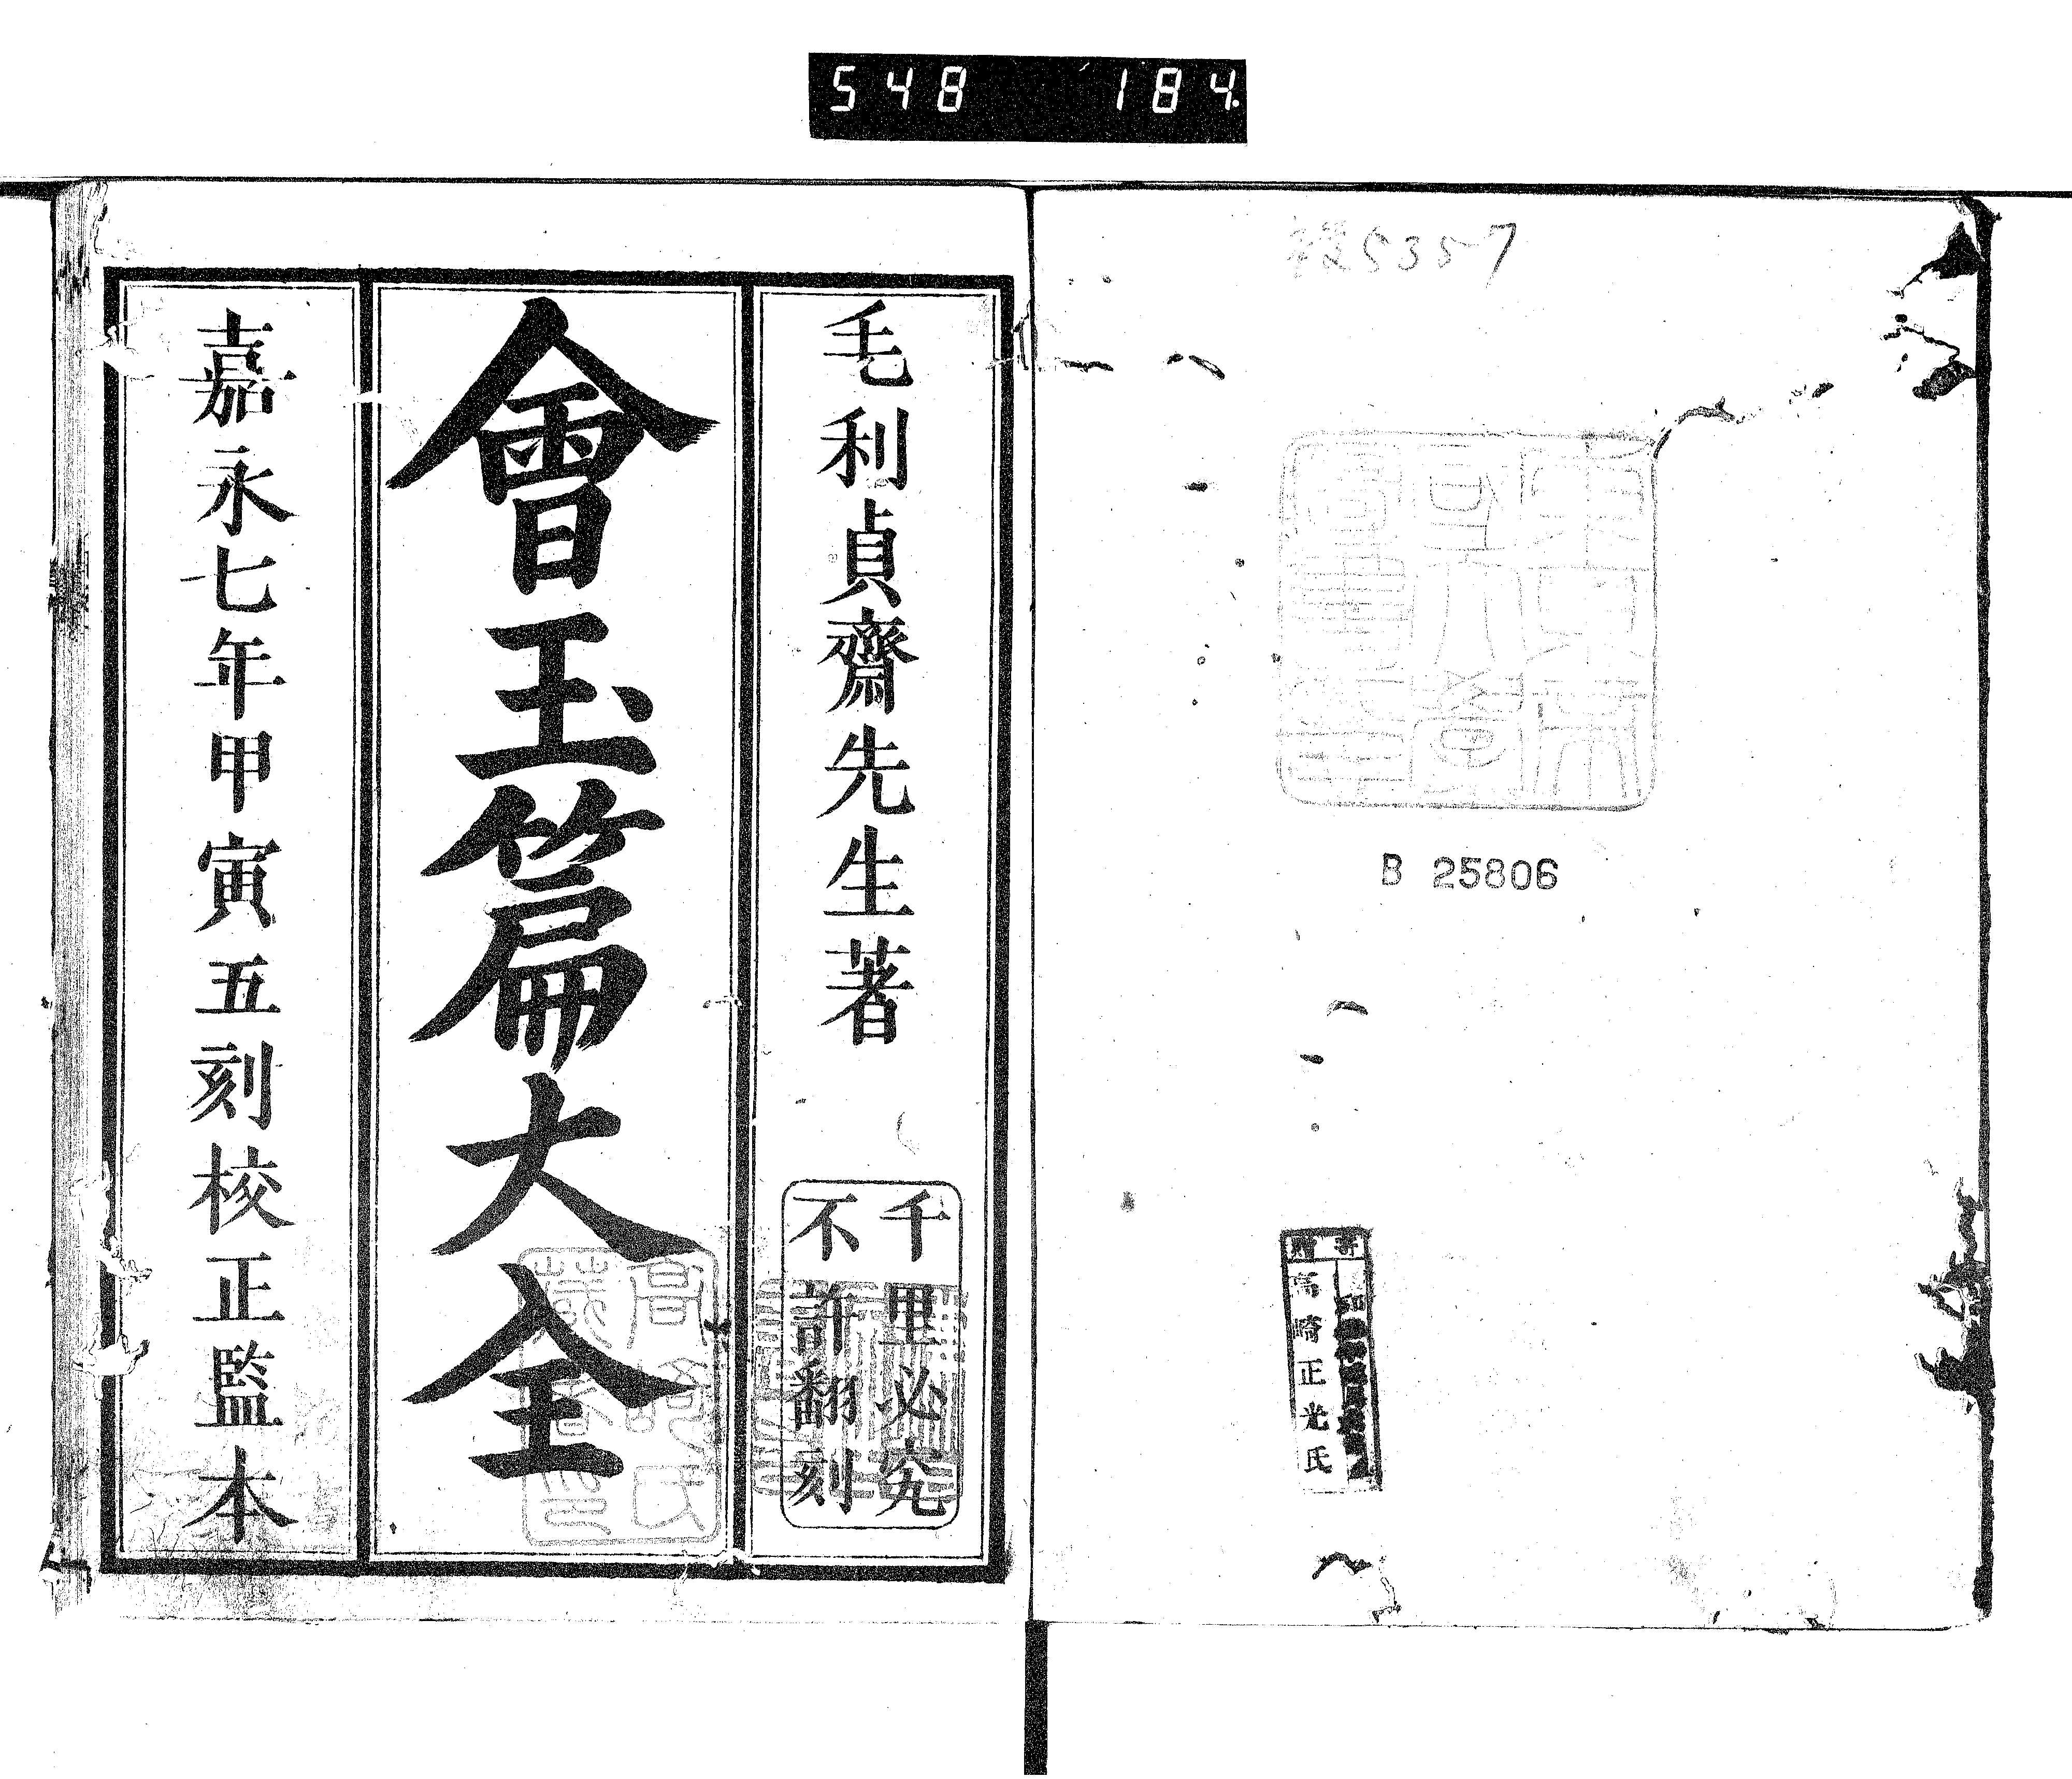 548 184.
5357
B 25806
寄贈
高崎正光氏
毛利貞齋先生著
千里必究
不許翻刻
會玉篇大全
嘉永七年甲寅五刻校正監本